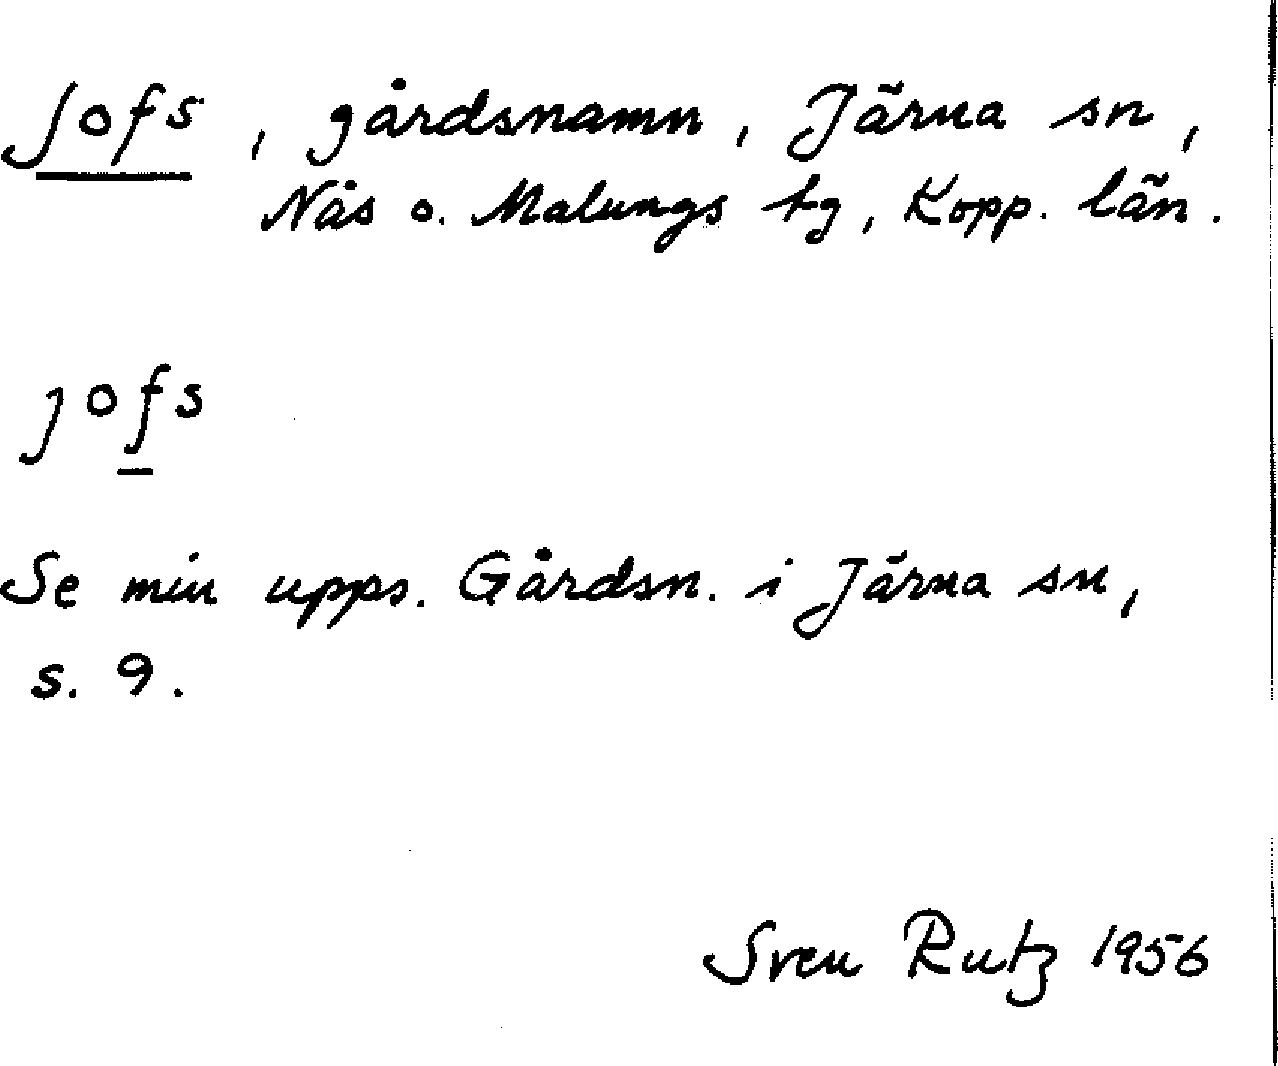 Jofs, gårdsnamn, Järna sn,
Nås o. Malungs tg, Kopp. län.
jofs
Se min upps. Gårdsn. i Järna sn,
s. 9.
Sven Rutz 1956